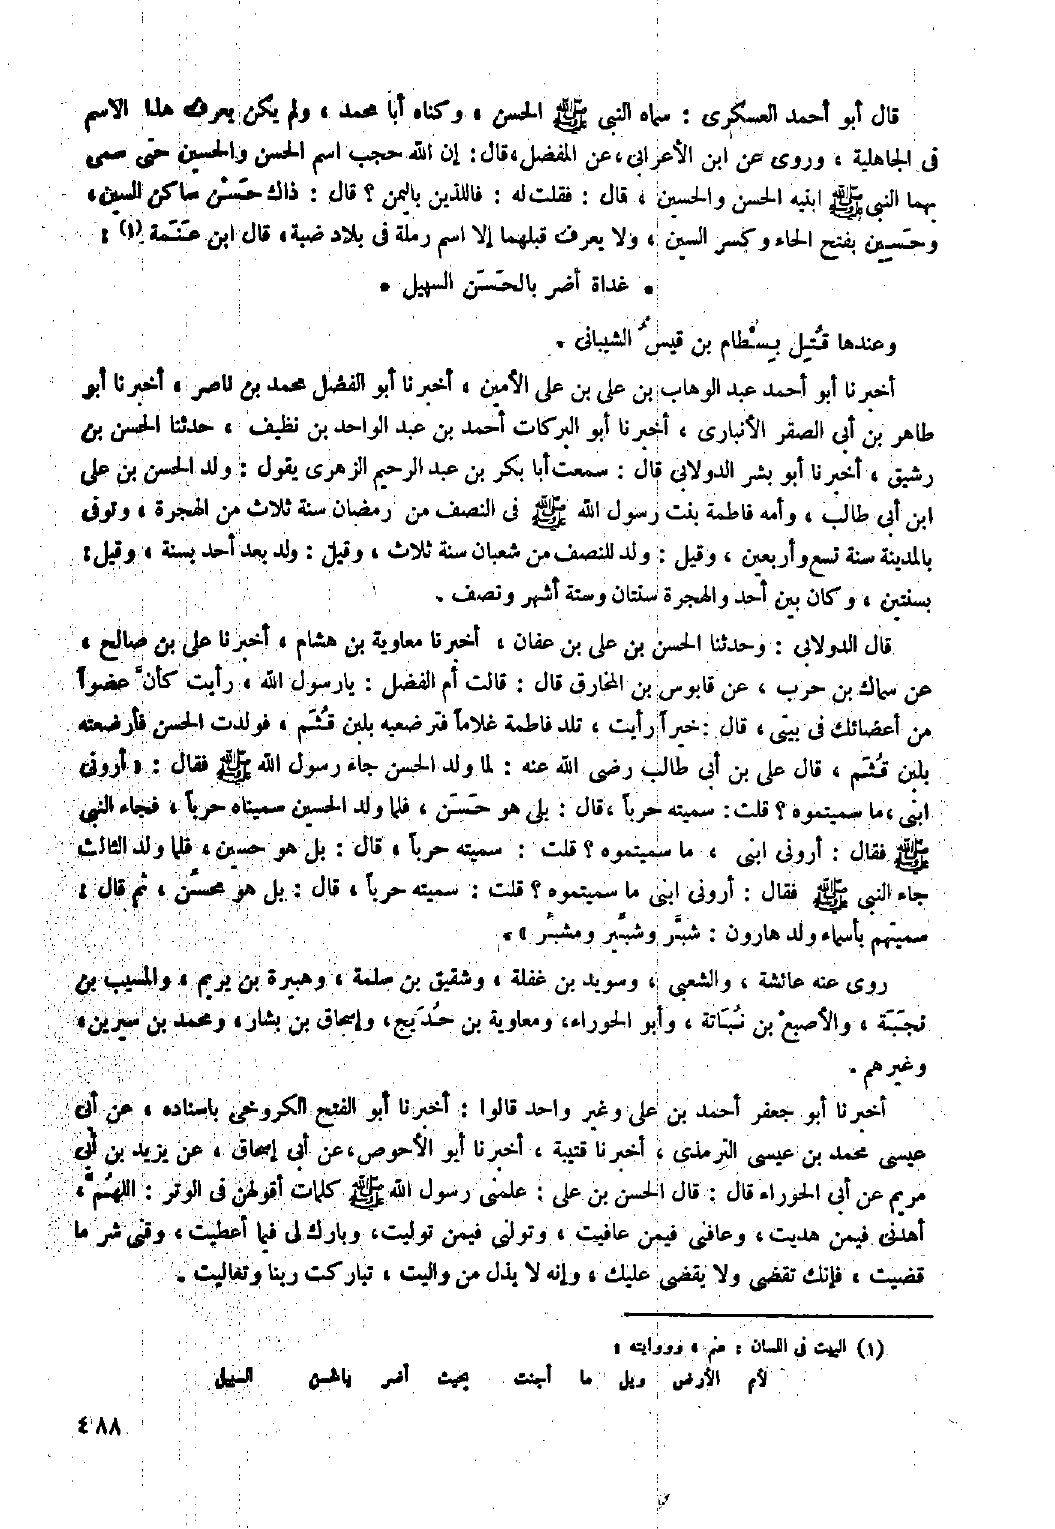 قال أبو أحمد العسكرى : سماه النبى ﷺ الحسن ، وكناه أبا محمد ، ولم يكن يعرف هذا الاسم
فى الجاهلية ، وروى عن ابن الأعرابى ، عن المفضل ، قال : إن الله حجب اسم الحسن والحسين حتى سمى
بهما النبى ﷺ ابنيه الحسن والحسين ، قال : فقلت له : فاللذين باليمن ؟ قال : ذاك حَسْن ساكن السين ،
وحَسِين بفتح الحاء وكسر السين ، ولا يعرف قبلهما إلا اسم رملة فى بلاد ضبة ، قال ابن عَنَمة (١) :
* غداة أضر بالحَسَن السهيل *
وعندها قُتِل بِسْطام بن قيس الشيبانى .
أخبرنا أبو أحمد عبد الوهاب بن على بن على الأمين ، أخبرنا أبو الفضل محمد بن ناصر ، أخبرنا أبو
طاهر بن أبى الصقر الأنبارى ، أخبرنا أبو البركات أحمد بن عبد الواحد بن نظيف ، حدثنا الحسن بن
رشيق ، أخبرنا أبو بشر الدولابى قال : سمعت أبا بكر بن عبد الرحيم الزهرى يقول : ولد الحسن بن على
ابن أبى طالب ، وأمه فاطمة بنت رسول الله ﷺ فى النصف من رمضان سنة ثلاث من الهجرة ، وتوفى
بالمدينة سنة تسع وأربعين ، وقيل : ولد للنصف من شعبان سنة ثلاث ، وقيل : ولد بعد أحد بسنة ، وقيل :
بسنتين ، وكان بين أحد والهجرة سنتان وستة أشهر ونصف .
قال الدولابى : وحدثنا الحسن بن على بن عفان ، أخبرنا معاوية بن هشام ، أخبرنا على بن صالح ،
عن سماك بن حرب ، عن قابوس بن المخارق قال : قالت أم الفضل : يارسول الله ، رأيت كأنَّ عضواً
من أعضائك فى بيتى ، قال : خيراً رأيت ، تلد فاطمة غلاماً فترضعيه بلبن قُثَم ، فولدت الحسن فأرضعته
بلبن قُثَم ، قال على بن أبى طالب رضى الله عنه : لما ولد الحسن جاء رسول الله ﷺ فقال : « أرونى
ابنى ، ما سميتموه ؟ قلت : سميته حرباً ، قال : بلى هو حَسَن ، فلما ولد الحسين سميناه حرباً ، فجاء النبى
ﷺ فقال : أرونى ابنى ، ما سميتموه ؟ قلت : سميته حرباً ، قال : بل هو حسين ، فلما ولد الثالث
جاء النبى ﷺ فقال : أرونى ابنى ما سميتموه ؟ قلت : سميته حرباً ، قال : بل هو محسَّن ، ثم قال :
سميتهم بأسماء ولد هارون : شبَّر وشبَّير ومشبَّر » .
روى عنه عائشة ، والشعبى ، وسويد بن غفلة ، وشقيق بن سلمة ، وهبيرة بن يريم ، والمسيب بن
نجَبَة ، والأصبغ بن نُبَاتة ، وأبو الحوراء ، ومعاوية بن حُدَيج ، وإسحاق بن بشار ، ومحمد بن سيرين ،
وغيرهم .
أخبرنا أبو جعفر أحمد بن على وغير واحد قالوا : أخبرنا أبو الفتح الكروخى باسناده ، عن أبى
عيسى محمد بن عيسى الترمذى ، أخبرنا قتيبة ، أخبرنا أبو الأحوص ، عن أبى إسحاق ، عن يزيد بن أبى
مريم عن أبى الحوراء قال : قال الحسن بن على : علمنى رسول الله ﷺ كلمات أقولهن فى الوتر : اللهُم ،
أهدنى فيمن هديت ، وعافنى فيمن عافيت ، وتولنى فيمن توليت ، وبارك لى فيما أعطيت ، وقنى شر ما
قضيت ، فإنك تقضى ولا يقضى عليك ، وإنه لا يذل من واليت ، تباركت ربنا وتعاليت .
(١) البيت فى اللسان : ، وروايته :
لأم الأرض ويل ما أجنت بحيث أضر بالحسن السبيل
٤٨٨